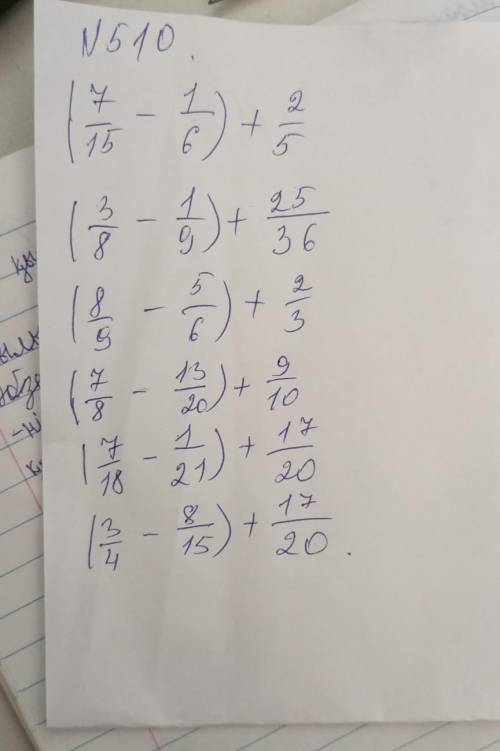 N510.
(7/15 - 1/6) + 2/5
(3/8 - 1/9) + 25/36
(8/9 - 5/6) + 2/3
(7/8 - 13/20) + 9/10
(7/18 - 1/21) + 17/20
(3/4 - 8/15) + 17/20.